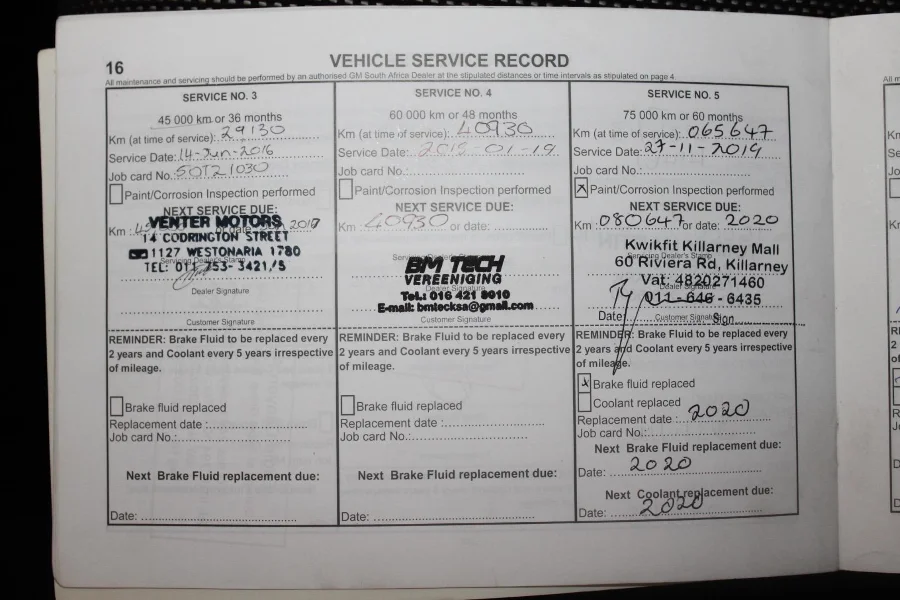 16
VEHICLE SERVICE RECORD
All maintenance and servicing should be performed by an authorised GM South Africa Dealer at the stipulated distances or time intervals as stipulated on page 4.
SERVICE NO. 3
45 000 km or 36 months
Km (at time of service): 29130
Service Date: 14-Jun-2016
Job card No.: SOT21030
Paint/Corrosion Inspection performed
NEXT SERVICE DUE:
Km : or date 2017
VENTER MOTORS
14 CODRINGTON STREET
1127 WESTONARIA 1780
Servicing Dealer's Stamp
TEL: 011 753-3421/5
Dealer Signature
Customer Signature
REMINDER: Brake Fluid to be replaced every
2 years and Coolant every 5 years irrespective
of mileage.
Brake fluid replaced
Replacement date :
Job card No.:
Next Brake Fluid replacement due:
Date:
SERVICE NO. 4
60 000 km or 48 months
Km (at time of service): 40930
Service Date: 2018-01-19
Job card No.:
Paint/Corrosion Inspection performed
NEXT SERVICE DUE:
Km : 40930 or date:
Servicing Dealer's Stamp
BM TECH
VEREENIGING
Dealer Signature
TeL: 016 421 8010
E-mail: bmtecksa@gmail.com
Customer Signature
REMINDER: Brake Fluid to be replaced every
2 years and Coolant every 5 years irrespective
of mileage.
Brake fluid replaced
Replacement date :
Job card No.:
Next Brake Fluid replacement due:
Date:
SERVICE NO. 5
75 000 km or 60 months
Km (at time of service): 065647
Service Date: 27-11-2019
Job card No.:
Paint/Corrosion Inspection performed
NEXT SERVICE DUE:
Km : 080647 or date: 2020
Kwikfit Killarney Mall
Servicing Dealer's Stamp
60 Riviera Rd, Killarney
Vat: 4820271460
Dealer Signature
011-646-6435
Date Customer Signature Sign
REMINDER: Brake Fluid to be replaced every
2 years and Coolant every 5 years irrespective
of mileage.
Brake fluid replaced
Coolant replaced
Replacement date : 2020
Job card No.:
Next Brake Fluid replacement due:
Date: 2020
Next Coolant replacement due:
Date: 2020